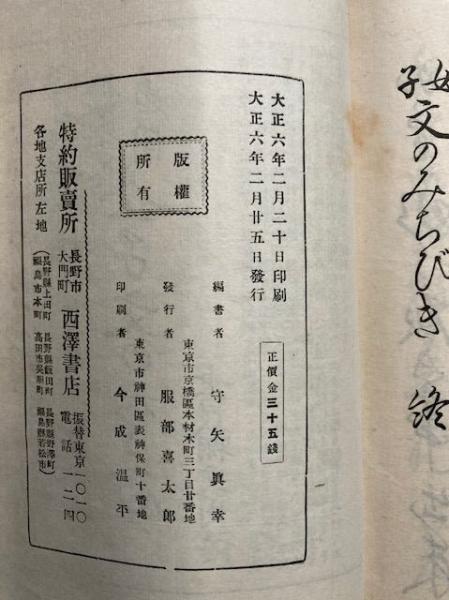 女子文のみちびき 終
大正六年二月二十日印刷
大正六年二月廿五日發行
正價金三十五錢
版權所有
編書者 守矢眞幸
東京市京橋區本材木町三丁目廿番地
發行者 服部喜太郎
東京市神田區表神保町十番地
印刷者 今成温平
特約販賣所 長野市大門町 西澤書店 振替東京一〇一〇 電話一二四
各地支店所在地
長野縣上田町 長野縣飯田町 長野縣野澤町
福島市本町 高田市吳服町 福島縣若松市